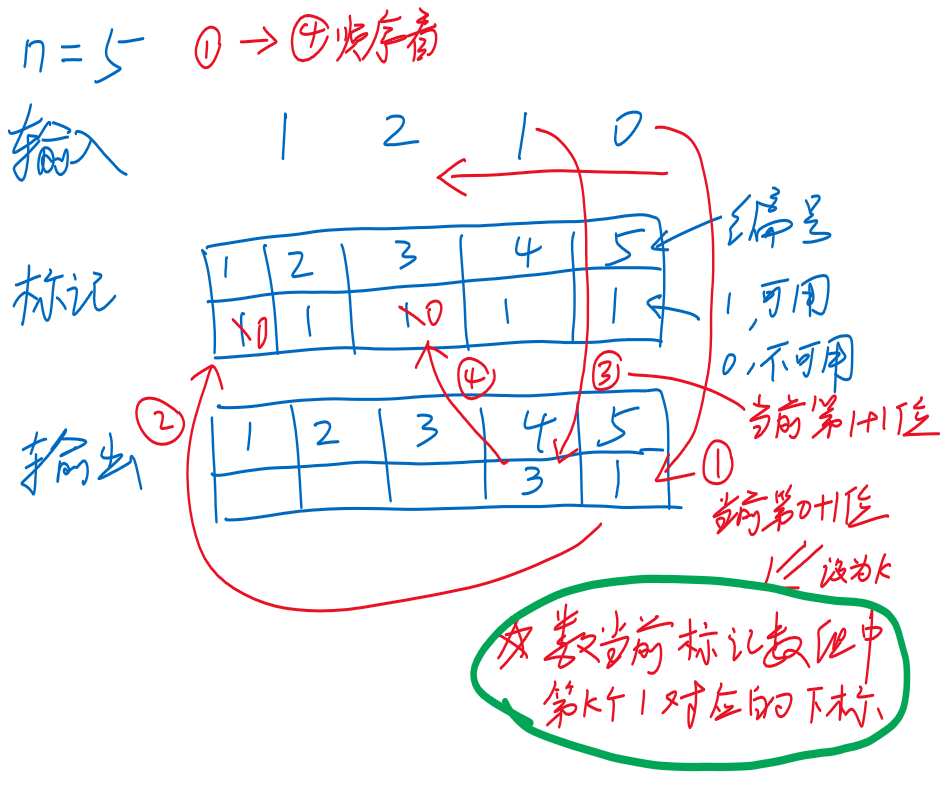 n=5 ①→④顺序看
输入 1 2 1 0
编号
1 2 3 4 5
标记
1 0 1 1 0 1 1
1,可用
0,不可用
② ④ ③
当前第1+1位
输出
1 2 3 4 5
3 1
①
当前第0+1位
1 设为k
☆数当前标记数组中
第k个1对应的下标